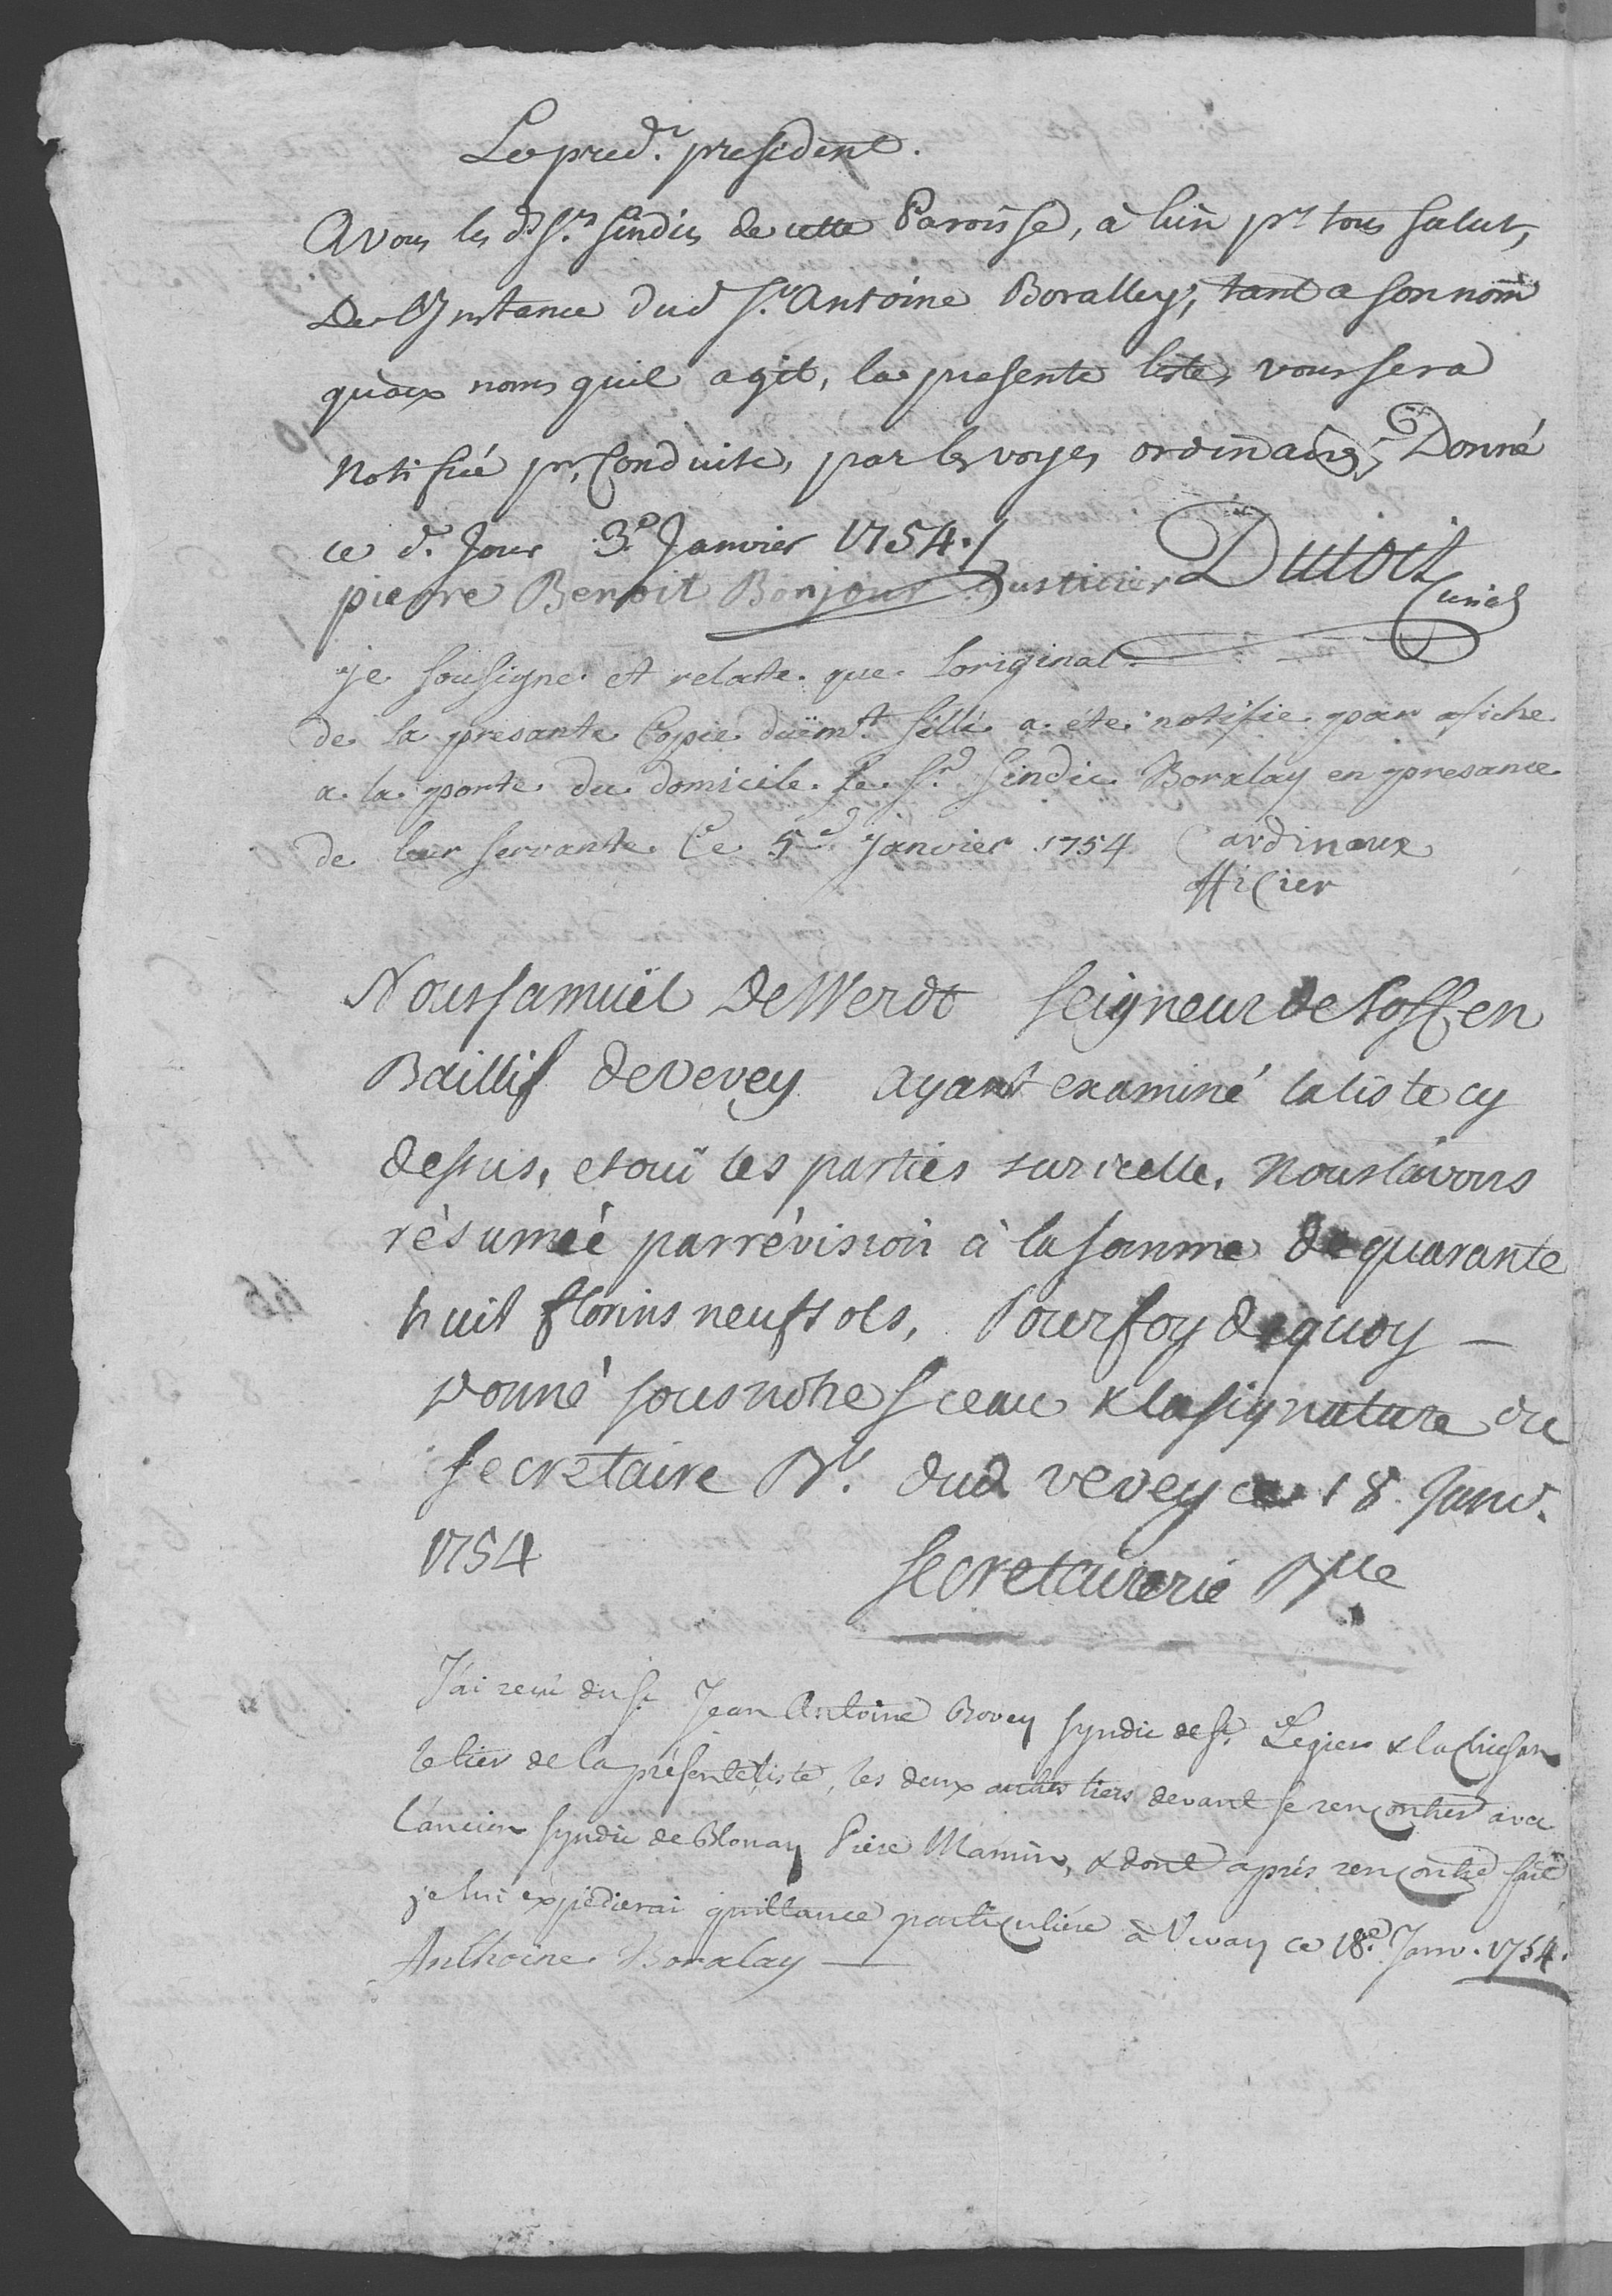 Le pred.r president.
A vous les ds Srs sindics de cette Paroisse, à l'un pr tous salut,
De l'Instance dud Sr Antoine Boralley, tant a son nom
quaux noms quil agit, la presente liste, vous sera
Notifiée pr Conduite, par les voyes ordinaires, Donné
ce d. Jour 3e Janvier 1754./.
pierre Benoit Bonjour Justicier Dutoit
Curial
je sousigné et relatte que Loriginal
de la presante Copie düemt sillé a été notifie par afiche
a la porte du domicile Le Sr. sindic Boralay en presance
de leur servante Ce 5e janvier 1754 Cardinaux
officier
Nous Samuël De Werdt Seigneur de Toffen
Baillif de Vevey ayant examiné la liste cy
dessus, et ouï les parties sur icelle, Nous l'avons
résumée par révision à la somme de quarante
huit florins neuf sols, Pour foy de quoy –
Donné sous notre sceau & la signature du
secretaire Bl. dud Vevey ce 18. Janv.
1754
Secretairerie Blle
J'ai reçu du Sr Jean Antoine Bovey syndic de St. Legier & la Chiesaz
le tier de la présente liste, les deux autres tiers devant se rencontrer avec
l'ancien syndic de Blonay Piere Mamin, & dont après rencontre fait
je lui expedierai quittance particuliére à Vevay ce 18e. Janv. 1754.
Anthoine Boralay